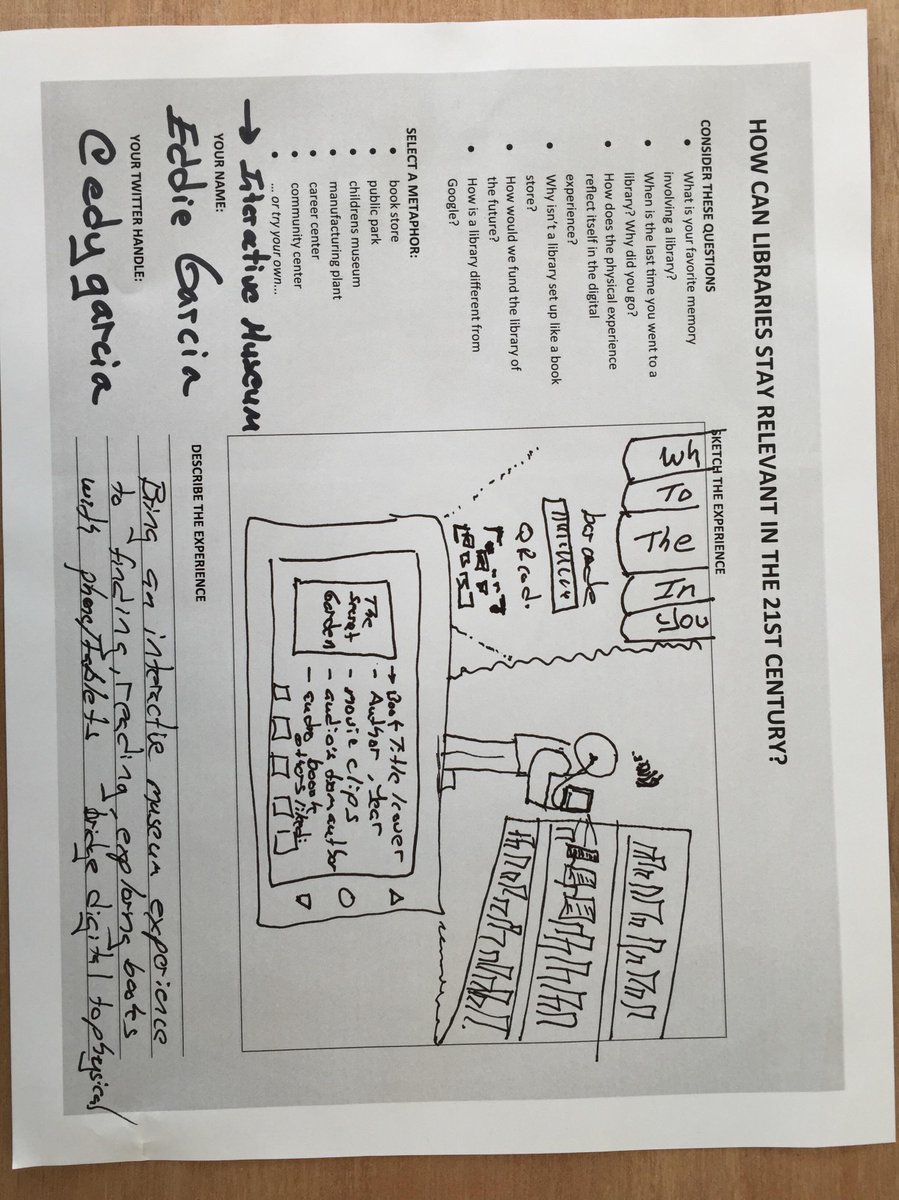 HOW CAN LIBRARIES STAY RELEVANT IN THE 21ST CENTURY?
CONSIDER THESE QUESTIONS
• What is your favorite memory
involving a library?
• When is the last time you went to a
library? Why did you go?
• How does the physical experience
reflect itself in the digital
experience?
• Why isn't a library set up like a book
store?
• How would we fund the library of
the future?
• How is a library different from
Google?
SELECT A METAPHOR:
• book store
• public park
• childrens museum
• manufacturing plant
• career center
• community center
• ... or try your own...
→ Interative Museum
YOUR NAME:
Eddie Garcia
YOUR TWITTER HANDLE:
@edygarcia
SKETCH THE EXPERIENCE
To
The
barcode
QR cod.
The
secret
Garden
→ Book Title/cover
- Author, year
- movie clips
- audio's from author
- audio book
others liked:
DESCRIBE THE EXPERIENCE
Bring an interactie museum experience
to finding, reading, exploring books
with phone/tablets - bridge digital to physical